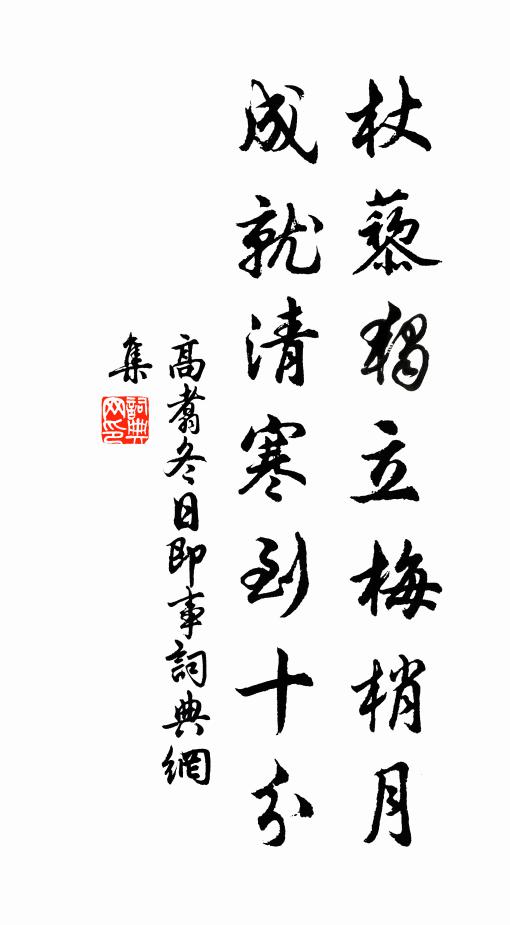 杖藜獨立梅梢月
成就清寒到十分
高翥冬日即事詞典網
集
詞典
网印